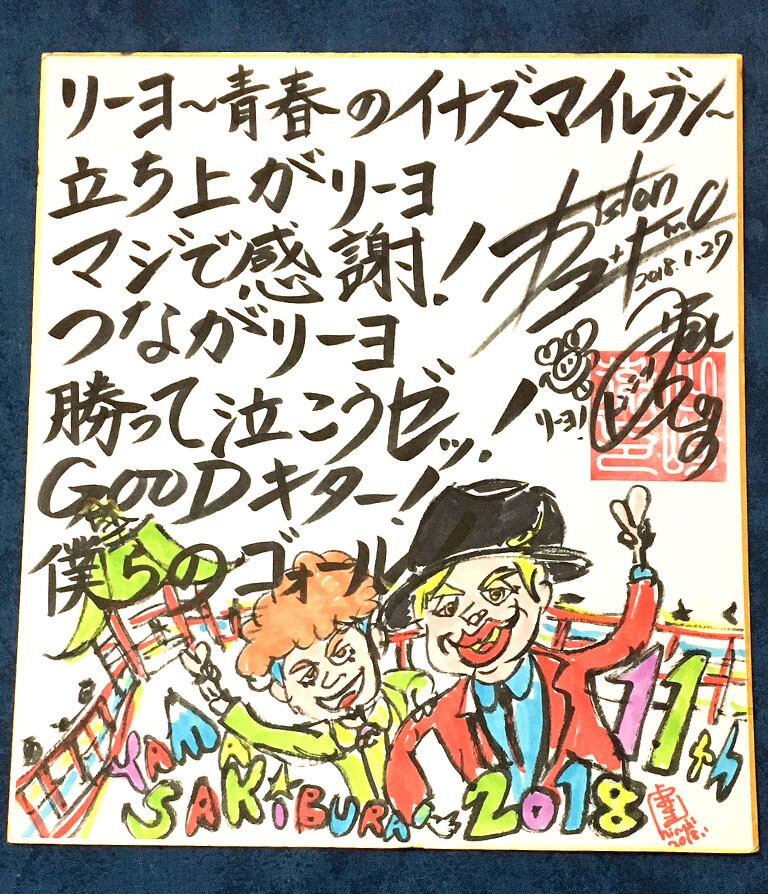 リーヨ～青春のイナズマイレブン～
立ち上がリーヨ
マジで感謝！
つながリーヨ
勝って泣こうゼッ！
GOODキター！
僕らのゴォール！
Piston
2018.1.27
リーヨ！
11th
YAMA
SAKiBURAi
2018